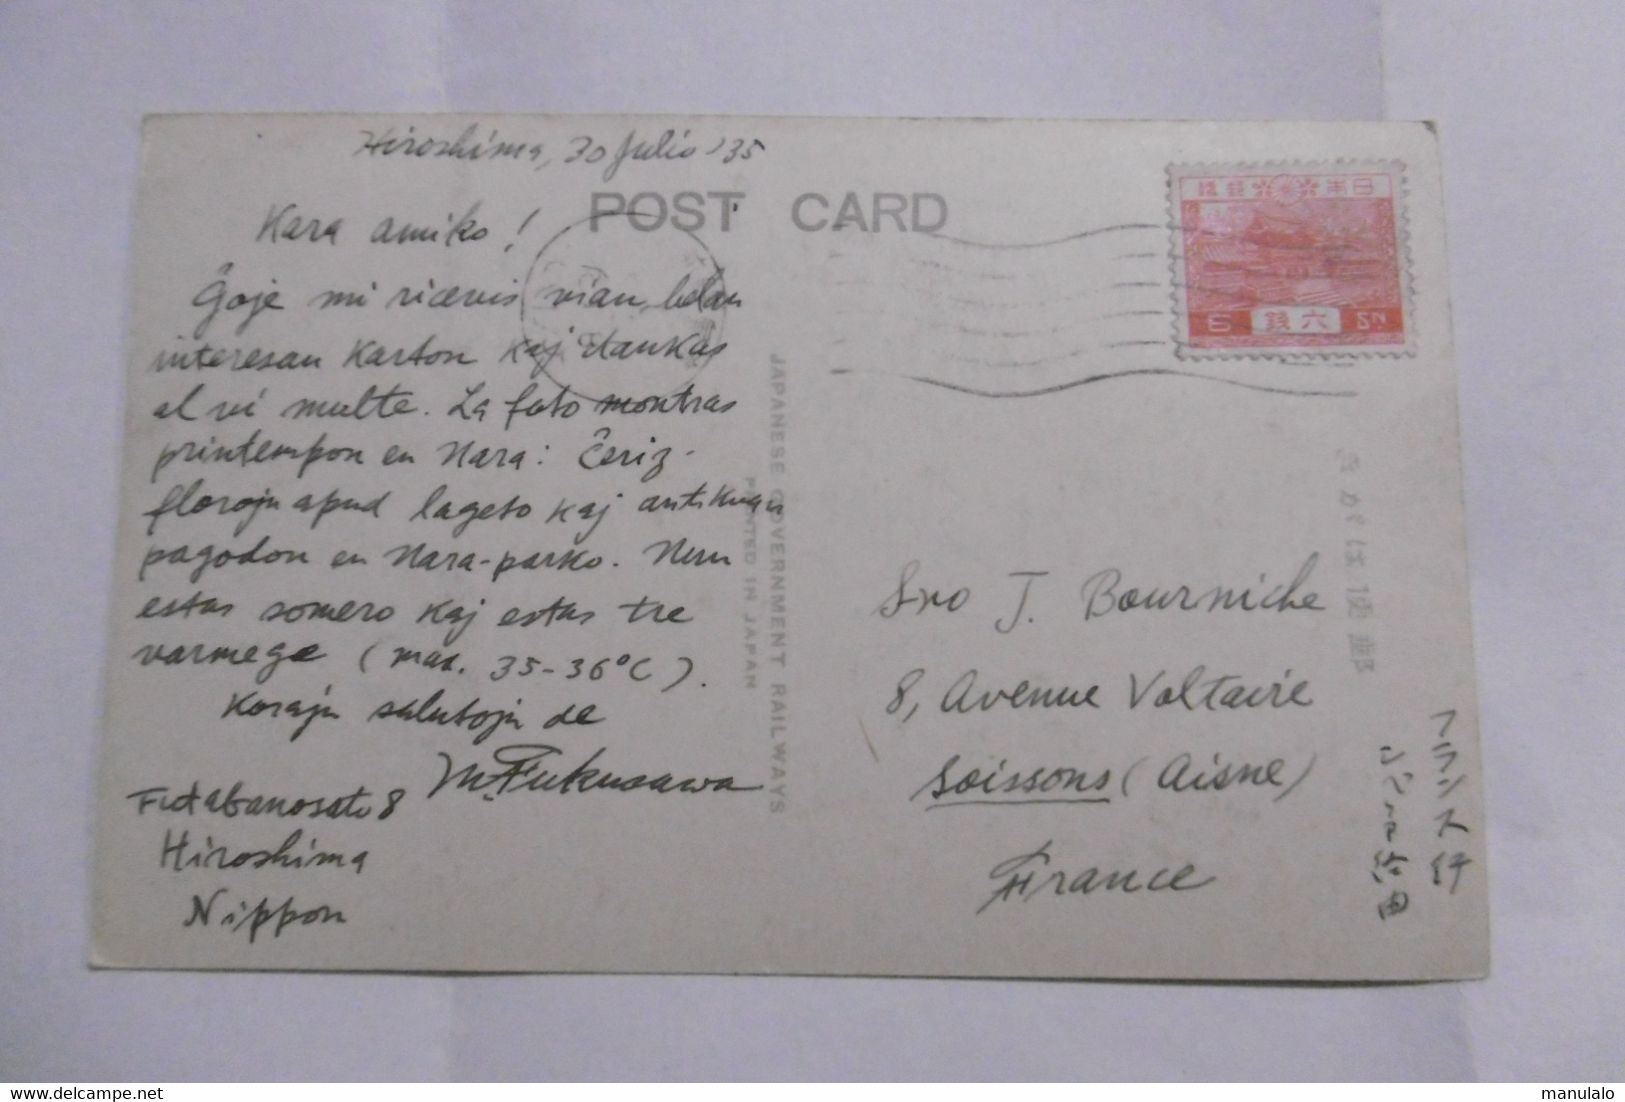 Hiroshima, 30 Julio '35
POST CARD
Kara amiko!
Ĝoje mi ricevis vian, belan
interesan karton kaj dankas
al vi multe. La foto montras
printempon en Nara: Ĉeriz-
floroju apud lageto kaj antikvan
pagodon en Nara-parko. Nun
estas somero kaj estas tre
varmege (max. 35-36°C).
Korajn salutojn de
M. Fukusawa
Futabanosato 8
Hiroshima
Nippon
JAPANESE GOVERNMENT RAILWAYS
PRINTED IN JAPAN
日本郵便
6 六銭 Sn.
きがは便郵
Sro J. Bourniche
8, Avenue Voltaire
Soissons (Aisne)
France
フランス行
manulalo